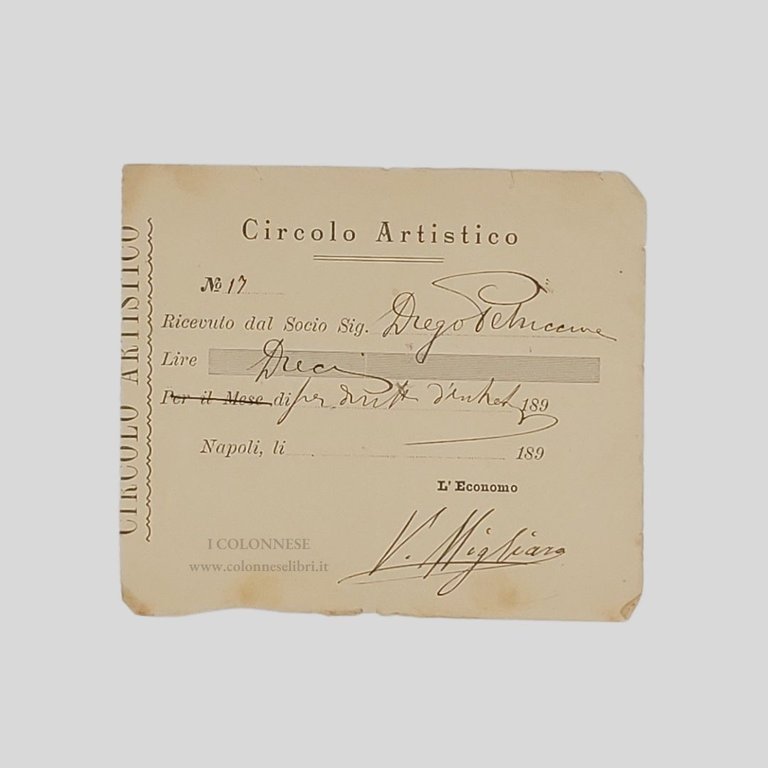 CIRCOLO ARTISTICO
Circolo Artistico
No 17
Ricevuto dal Socio Sig. Diego Petriccione
Lire Dieci
Per il Mese di per diritto d'entrata 189
Napoli, li 189
L'Economo
V. Migliaro
I COLONNESE
www.colonneselibri.it